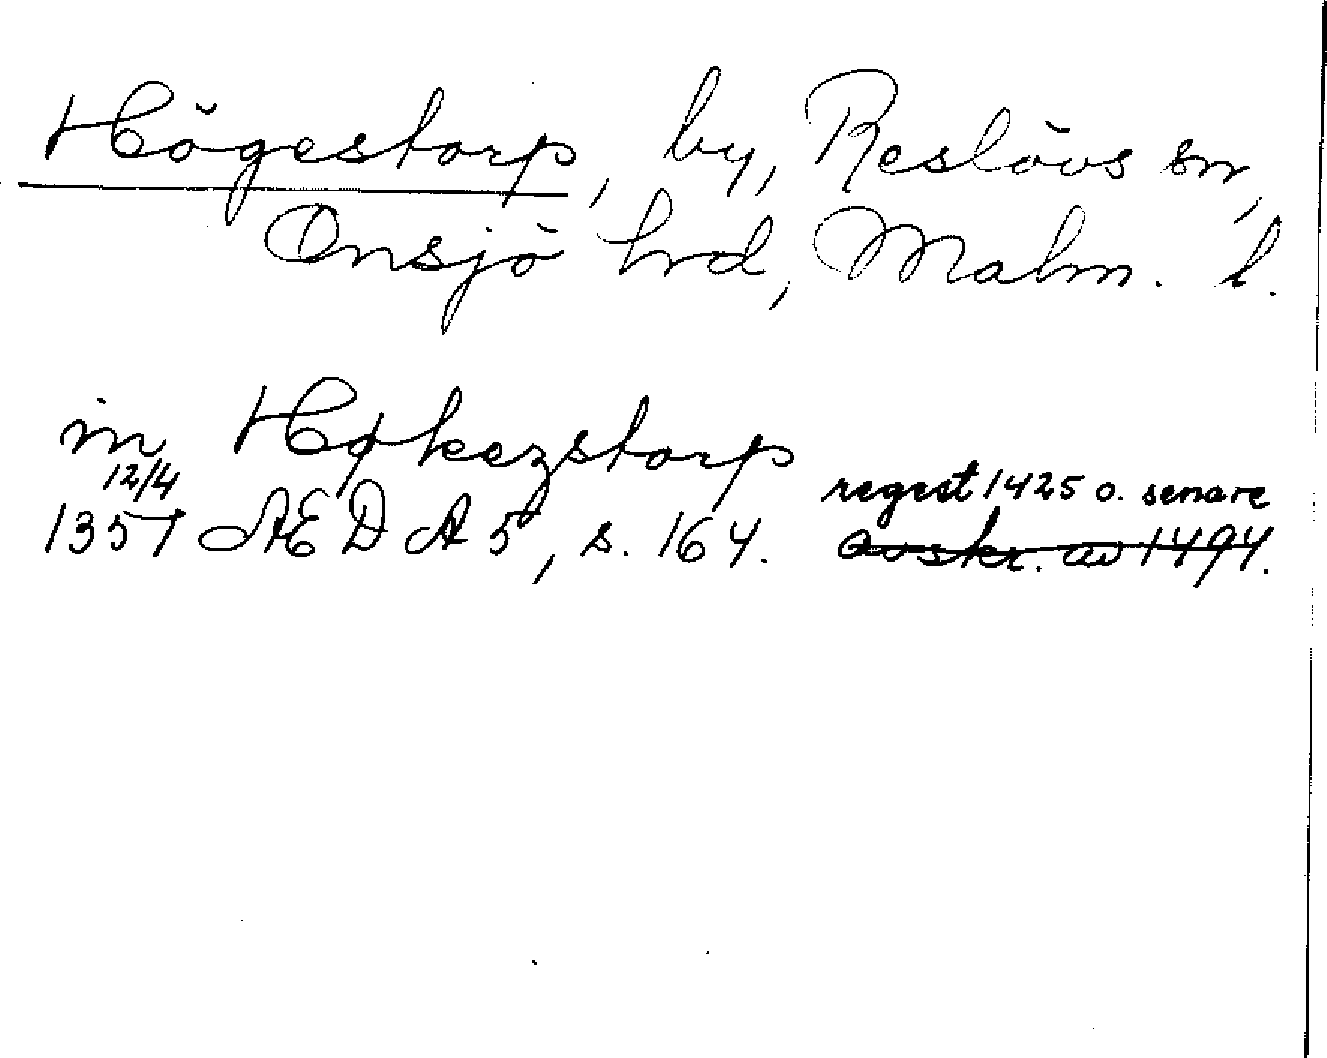 Högestorp, by, Reslövs sn,
Onsjö hrd, Malm. l.
in Høkezstorp
12/4
regest 1425 o. senare
1357 AEDA 5, s. 164. avskr. av 1494.